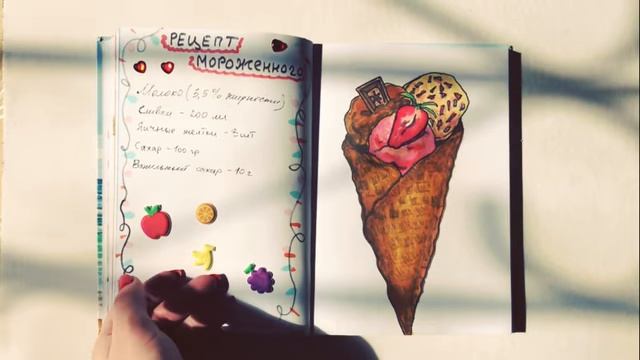 РЕЦЕПТ
МОРОЖЕННОГО
Молоко (3,5% жирности)
Сливки - 200 мл
Яичные желтки - 3 шт
Сахар - 100 гр
Ванильный сахар - 10 г